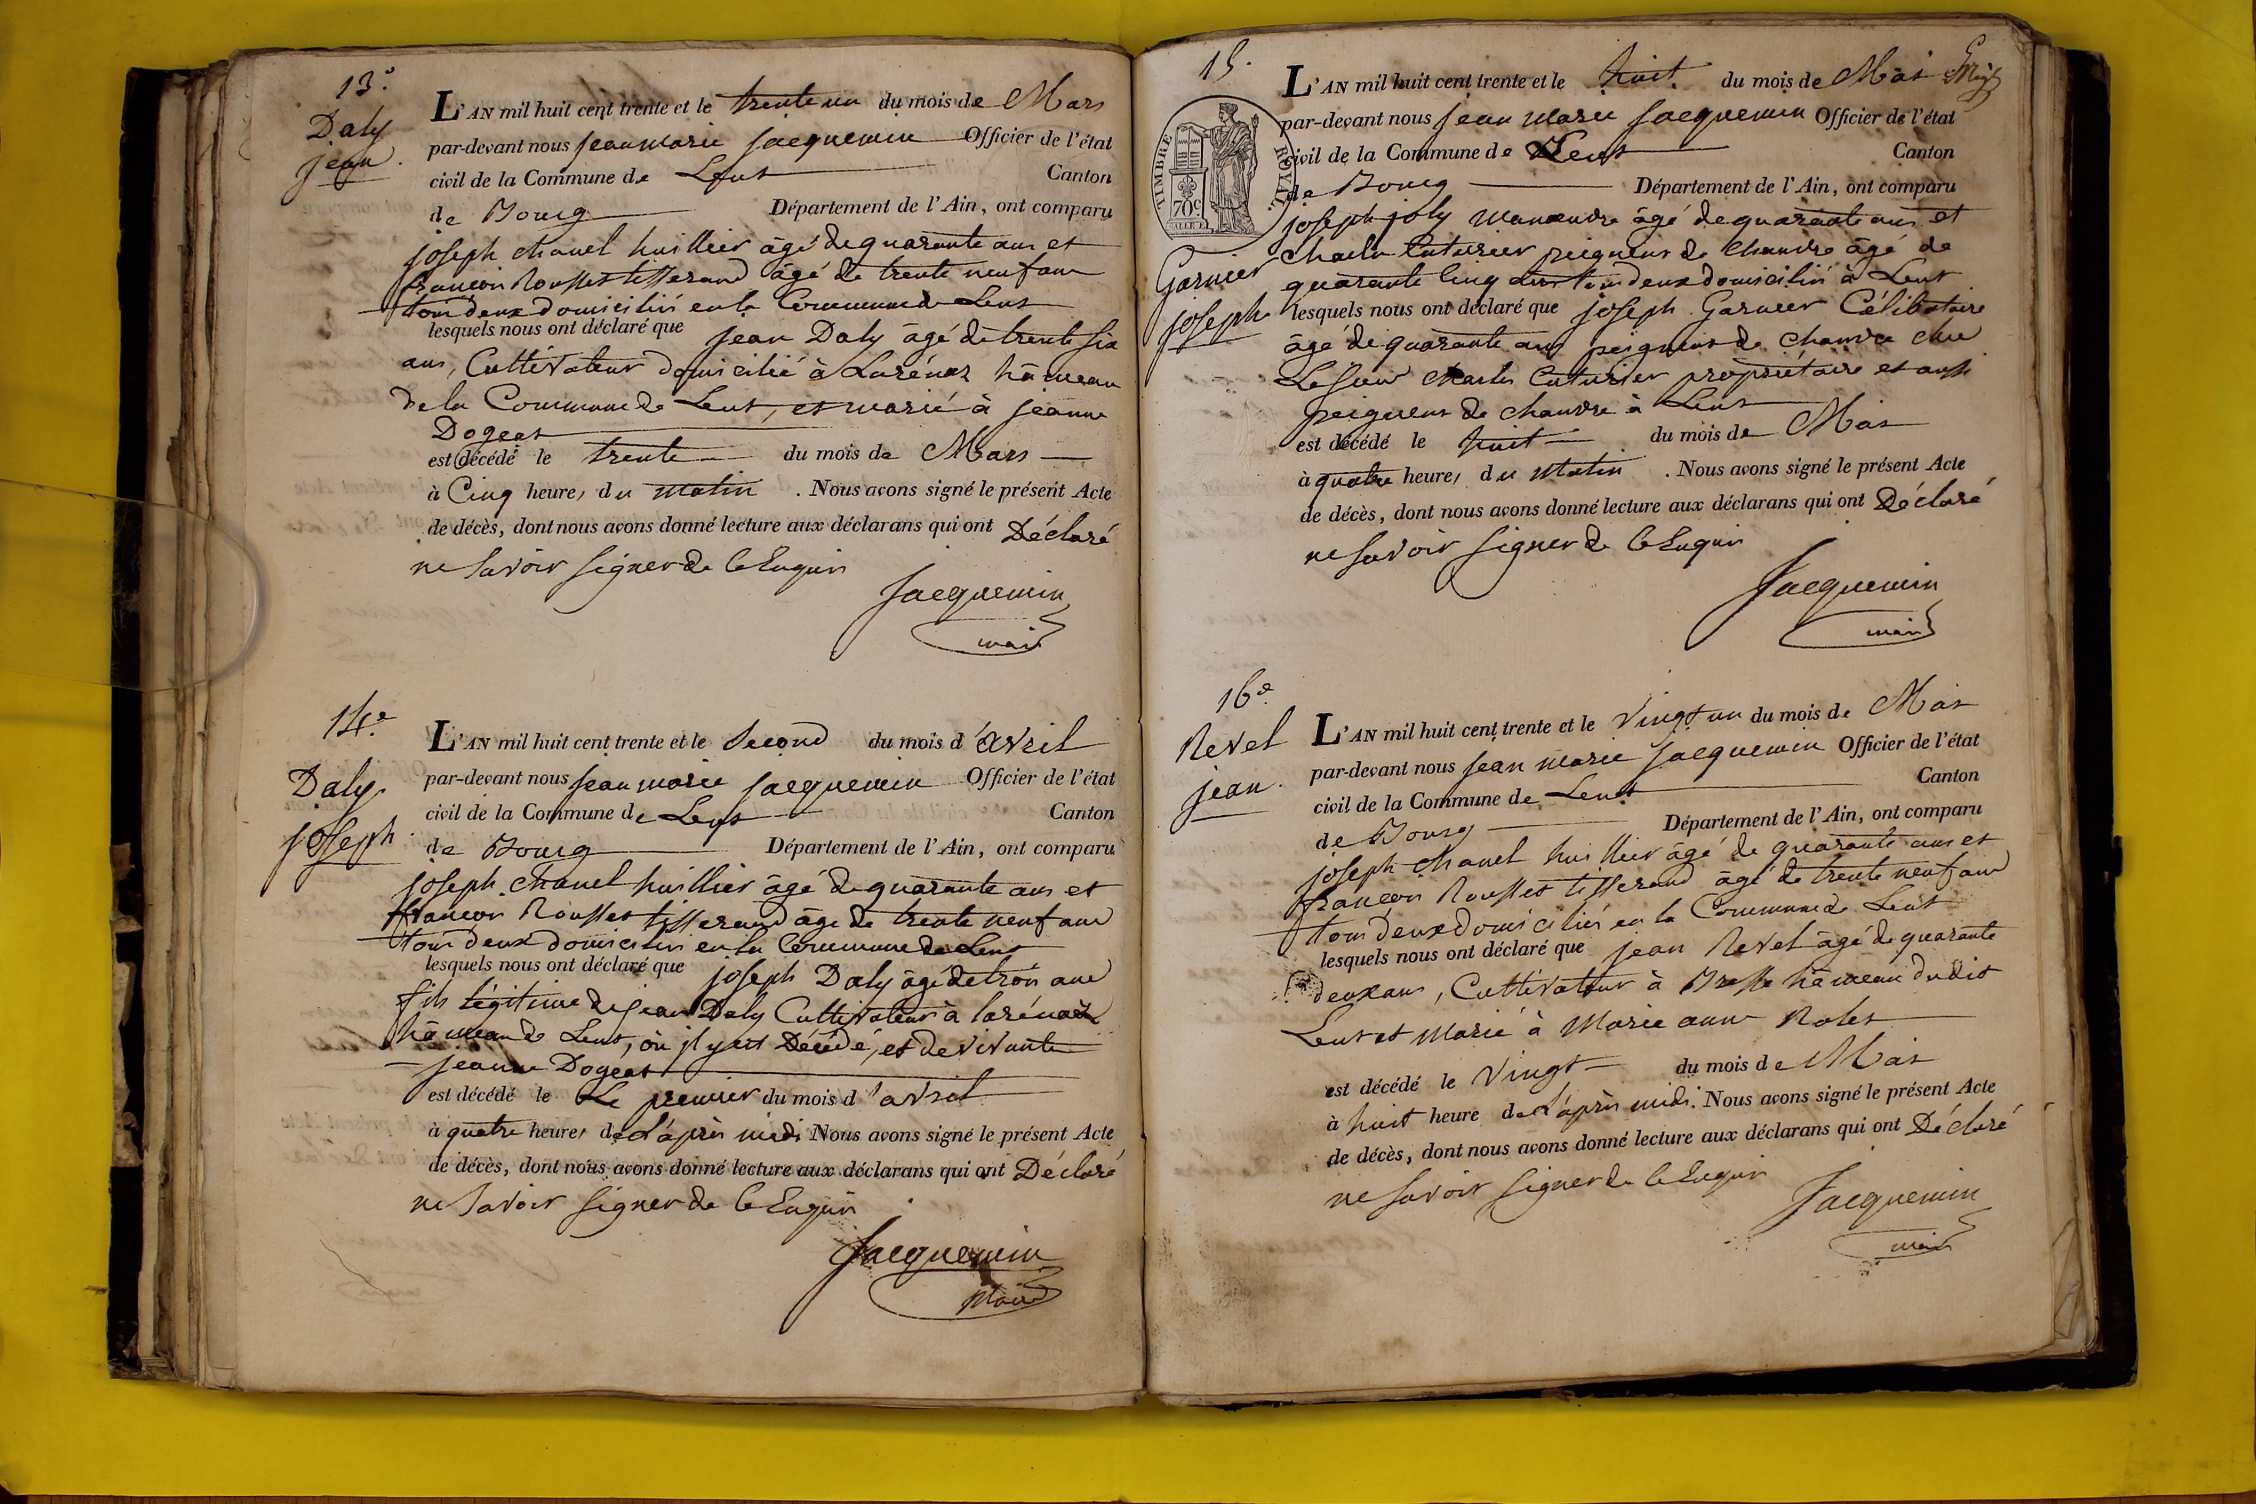 13e.
Daly
jean.
L'AN mil huit cent trente et le trente un du mois de Mars
par-devant nous jean marie jacquemin Officier de l'état
civil de la Commune de Lent Canton
de Bourg Département de l'Ain, ont comparu
joseph chanel huillier âgé de quarante ans et
francois Rousset tisserand âgé de trente neuf ans
tous deux domiciliés en la Commune de Lent
lesquels nous ont déclaré que jean Daly âgé de trente six
ans, Cultivateur domicilié à Larénaz hâmeau
de la Commune de Lent, et marié à jeanne
Dogeat
est décédé le trente du mois de Mars
à Cinq heures du matin. Nous avons signé le présent Acte
de décès, dont nous avons donné lecture aux déclarans qui ont Déclaré
ne savoir signer de ce Enquis
Jacquemin
maire
14e.
Daly
joseph.
L'AN mil huit cent trente et le Second du mois d'avril
par-devant nous jean marie jacquemin Officier de l'état
civil de la Commune de Lent Canton
de Bourg Département de l'Ain, ont comparu
joseph chanel huillier âgé de quarante ans et
francois Rousset tisserand âgé de trente neuf ans
tous deux domiciliés en la Commune de Lent
lesquels nous ont déclaré que joseph Daly âgé de trois ans
fils légitime de jean Daly Cultivateur à larénaz
hâmeau de Lent, où il y est Décédé, et de vivante
jeanne Dogeat
est décédé le Le premier du mois d'avril
à quatre heures de L'après midi Nous avons signé le présent Acte
de décès, dont nous avons donné lecture aux déclarans qui ont Déclaré
ne savoir signer de ce Enquis
Jacquemin
Maire
15.
L'AN mil huit cent trente et le huit du mois de Mai
par-devant nous jean marie jacquemin Officier de l'état
civil de la Commune de Lent Canton
de Bourg Département de l'Ain, ont comparu
TIMBRE ROYAL
70c
Garnier
joseph
joseph joly manoeuvre âgé de quarante ans et
Charles Cuturier peigneur de chanvre âgé de
quarante Cinq ans tous deux domiciliés à Lent
lesquels nous ont déclaré que joseph Garnier Célibataire
âgé de quarante ans peigneur de chanvre chez
Le sieur charles Cuturier propriétaire et aussi
peigneur de chanvre à Lent
est décédé le huit du mois de Mai
à quatre heures du Matin. Nous avons signé le présent Acte
de décès, dont nous avons donné lecture aux déclarans qui ont Déclaré
ne savoir signer de ce Enquis
Jacquemin
maire
16e.
Revel
jean.
L'AN mil huit cent trente et le Vingt un du mois de Mai
par-devant nous jean marie jacquemin Officier de l'état
civil de la Commune de Lent Canton
de Bourg Département de l'Ain, ont comparu
joseph chanel huillier âgé de quarante ans et
francois Rousset tisserand âgé de trente neuf ans
tous deux domiciliés en la Commune de Lent
lesquels nous ont déclaré que jean Revel âgé de quarante
deux ans, Cultivateur à Bresse hâmeau dudit
Lent et marié à Marie anne Rolet
est décédé le Vingt du mois de Mai
à huit heure de L'après midi. Nous avons signé le présent Acte
de décès, dont nous avons donné lecture aux déclarans qui ont Déclaré
ne savoir signer de ce Enquis
Jacquemin
maire